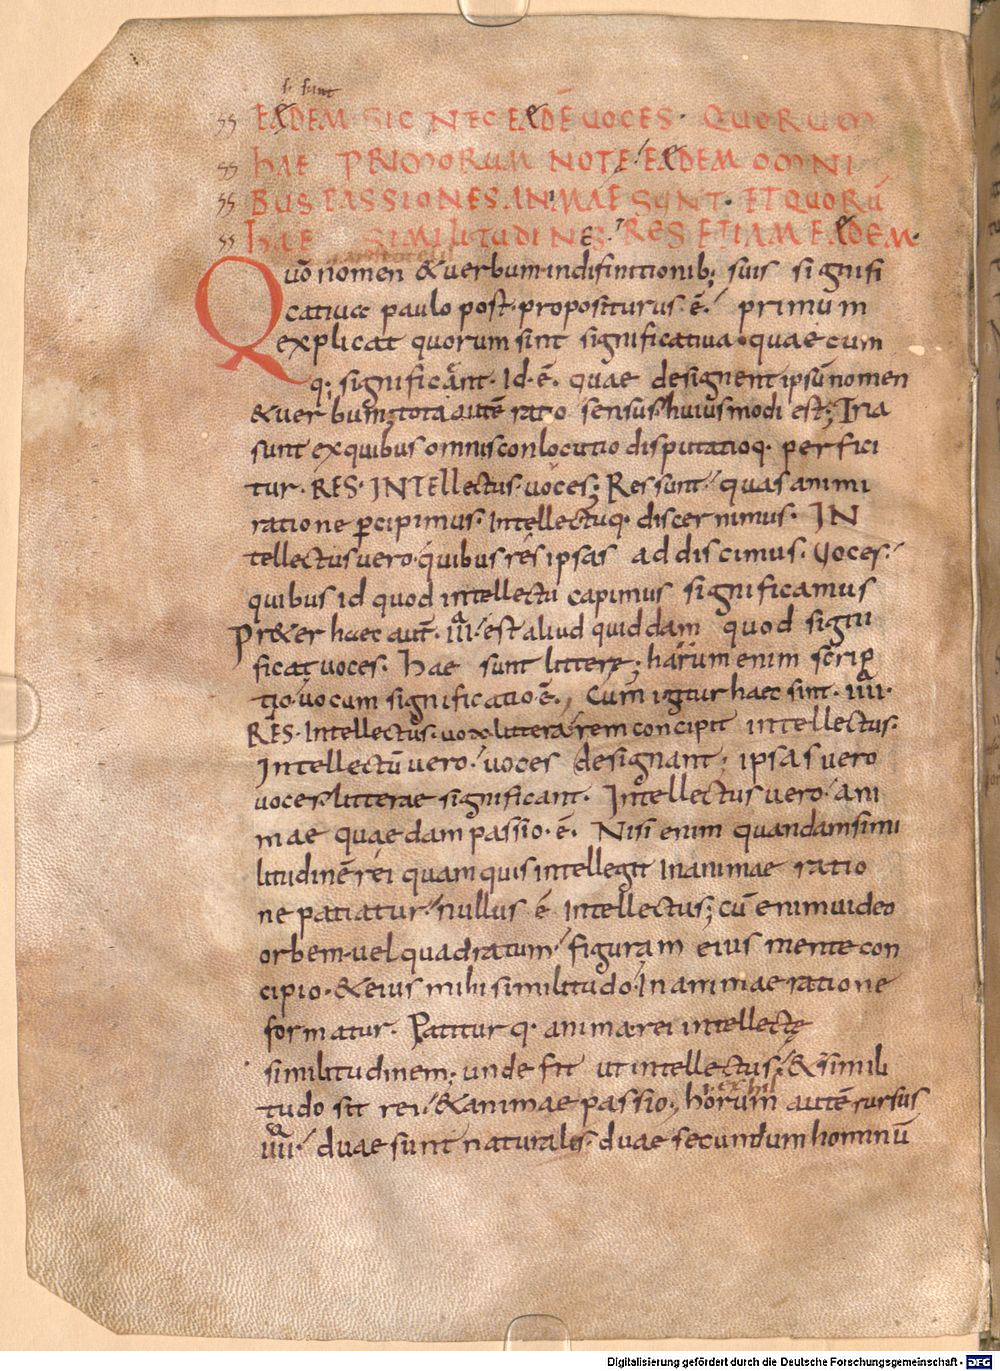 s. sunt
E&DEM SIC NEC E&DĒ UOCES · QUORUM
hAE PRIMORUM NOTE E&DEM OMNI
BUS PASSIONES ANIMAE SUNT · ET QUORŪ
hAE SIMILITUDINES · RES ETIAM E&DEM ·
Quō nomen & verbum indifinitionib; suis signifi
cativae paulo post propositurus · ē · primum
explicat quorum sint significativa · quae cum
q; significant · Id · ē · quae designent ipsū nomen
& verbum; tota autē ratio sensus huiusmodi est; Tria
sunt ex quibus omnis conlocutio disputatioq · perfici
tur · RES · INTEllectus · uoces; Res sunt quas animi
ratione ꝑcipimus · Intellectuq · discernimus · IN
tellectus uero quibus res ipsas addiscimus · Uoces
quibus id quod intellectu capimus significamus
Pr&er haec aut̄ · III · est aliud quiddam quod signi
ficat uoces · Hae sunt litterę; harum enim scrip
tio uocum significatio · ē; Cum igitur haec sint · IIII ·
RES · Intellectus · uox littera rem concipit intellectus ·
Intellectū uero uoces designant; ipsas uero
uoces litterae significant · Intellectus uero ani
mae quaedam passio · ē · Nisi enim quandam simi
litudinē rei quam quis intellegit In animae ratio
ne patiatur nullus ē Intellectus; cū enim uideo
orbem uel quadratum figuram eius mente con
cipio · & eius mihi similitudo In animae ratione
formatur · Patitur q · anima rei intellectę
similitudinem · unde fit ut intellectus & simili
tudo sit rei & animae passio; horum autē rursus
IIII · duae sunt naturales · duae secundum hominū
Digitalisierung gefördert durch die Deutsche Forschungsgemeinschaft - DFG